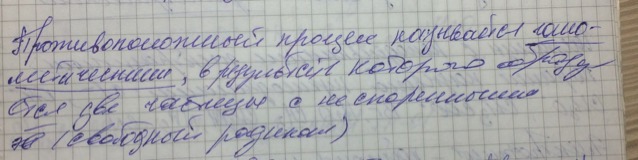 Противоположный процесс называется гомо-
литическим, в результате которого образу
ются две частицы с неспаренными
ē (свободный радикал)